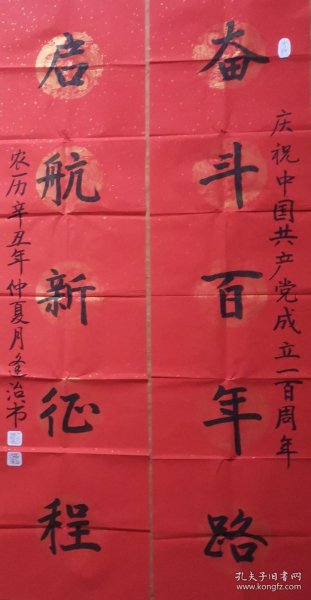 庆祝中国共产党成立一百周年
奋斗百年路
启航新征程
农历辛丑年仲夏月逢治书
孔夫子旧书网
www.kongfz.com